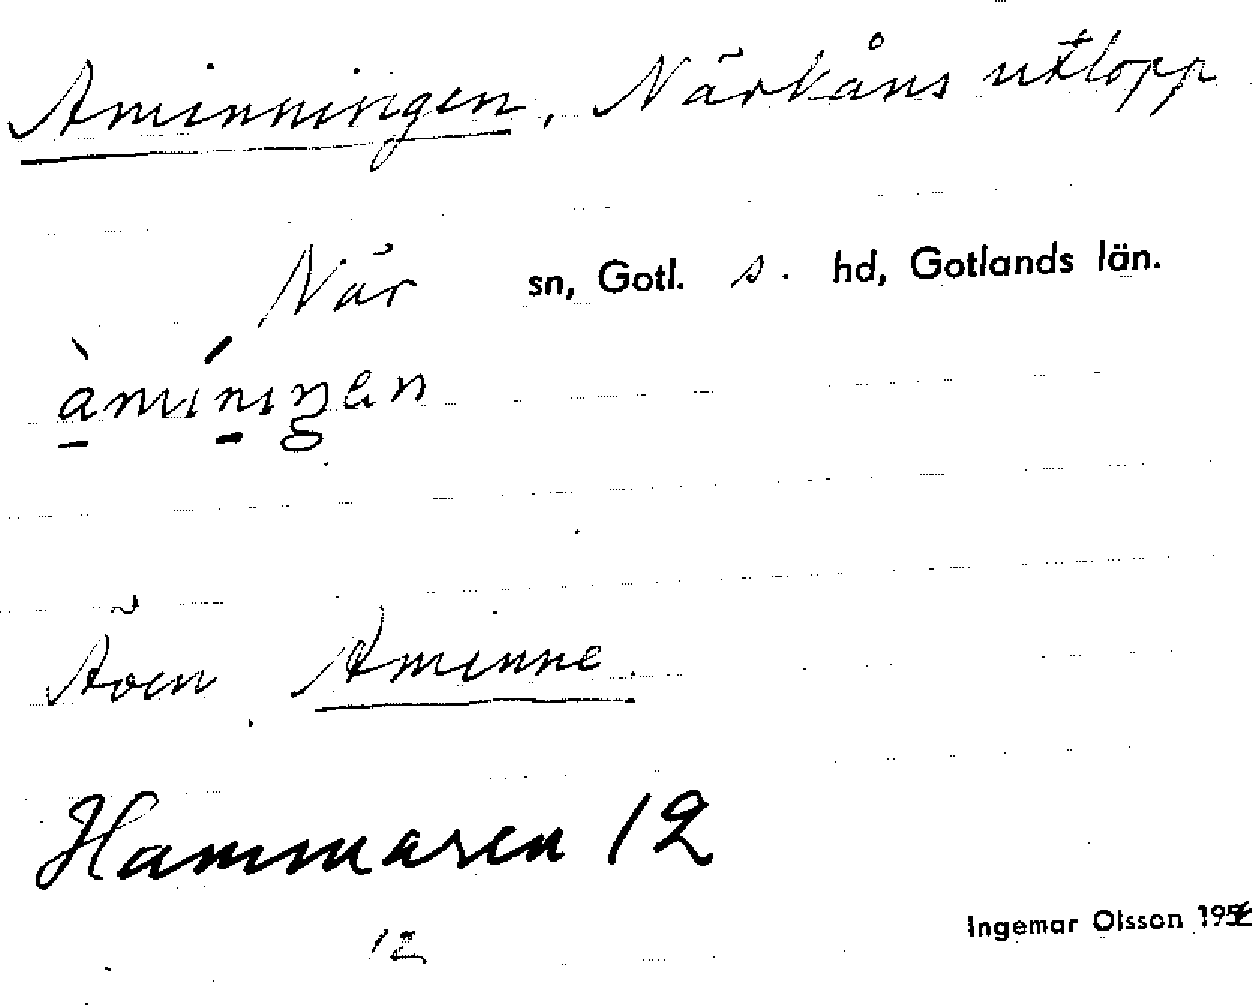 Aminningen, Närkåns utlopp
När sn, Gotl. s. hd, Gotlands län.
àmíniŋen
Även Aminne.
Hammaren 12
12
Ingemar Olsson